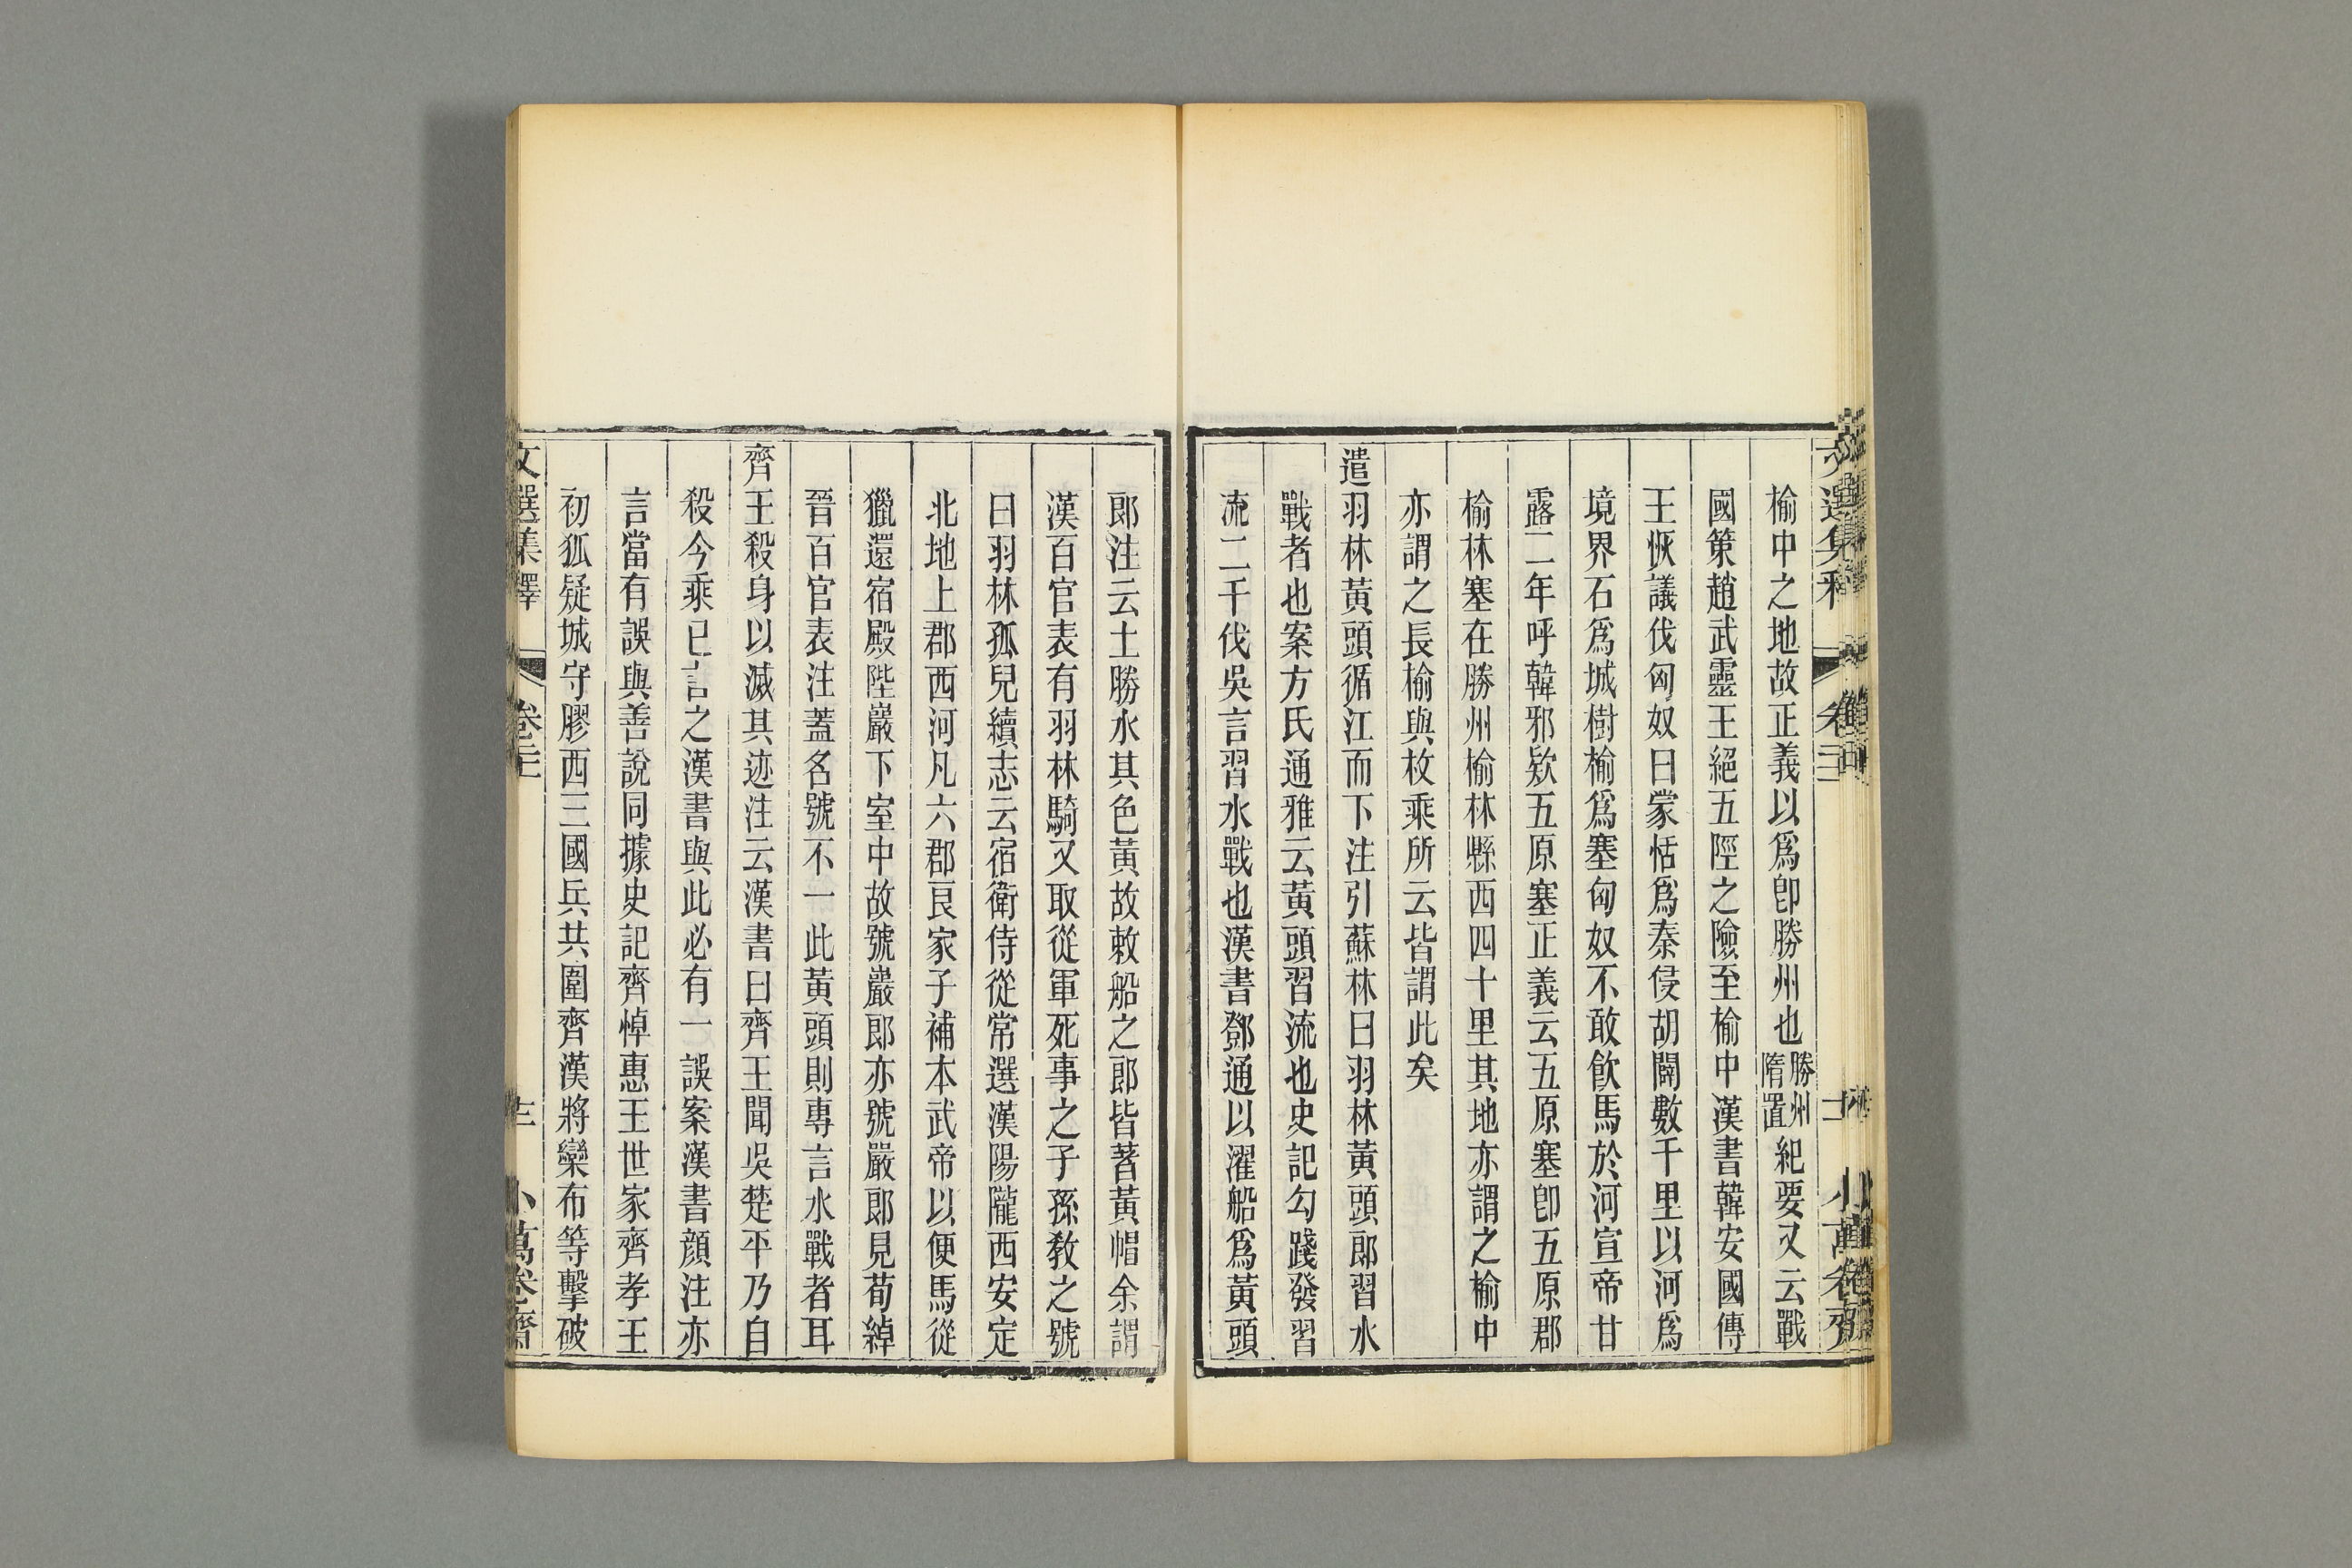 榆中之地故正義以爲卽勝州也勝州隋置紀要又云戰
國策趙武靈王絕五陘之險至榆中漢書韓安國傳
王恢議伐匈奴曰蒙恬爲秦侵胡闢數千里以河爲
境界石爲城樹榆爲塞匈奴不敢飲馬於河宣帝甘
露二年呼韓邪欵五原塞正義云五原塞卽五原郡
榆林塞在勝州榆林縣西四十里其地亦謂之榆中
亦謂之長榆與枚乘所云皆謂此矣
遣羽林黃頭循江而下注引蘇林曰羽林黃頭郎習水
戰者也案方氏通雅云黃頭習流也史記勾踐發習
流二千伐吳言習水戰也漢書鄧通以濯船爲黃頭
郎注云土勝水其色黃故敕船之郎皆著黃帽余謂
漢百官表有羽林騎又取從軍死事之子孫敎之號
曰羽林孤兒續志云宿衞侍從常選漢陽隴西安定
北地上郡西河凡六郡良家子補本武帝以便馬從
獵還宿殿陛巖下室中故號巖郎亦號嚴郎見荀綽
晉百官表注蓋名號不一此黃頭則專言水戰者耳
齊王殺身以滅其迹注云漢書曰齊王聞吳楚平乃自
殺今乘已言之漢書與此必有一誤案漢書顏注亦
言當有誤與善說同據史記齊悼惠王世家齊孝王
初狐疑城守膠西三國兵共圍齊漢將欒布等擊破
文選集釋 卷二十二 小萬卷齋